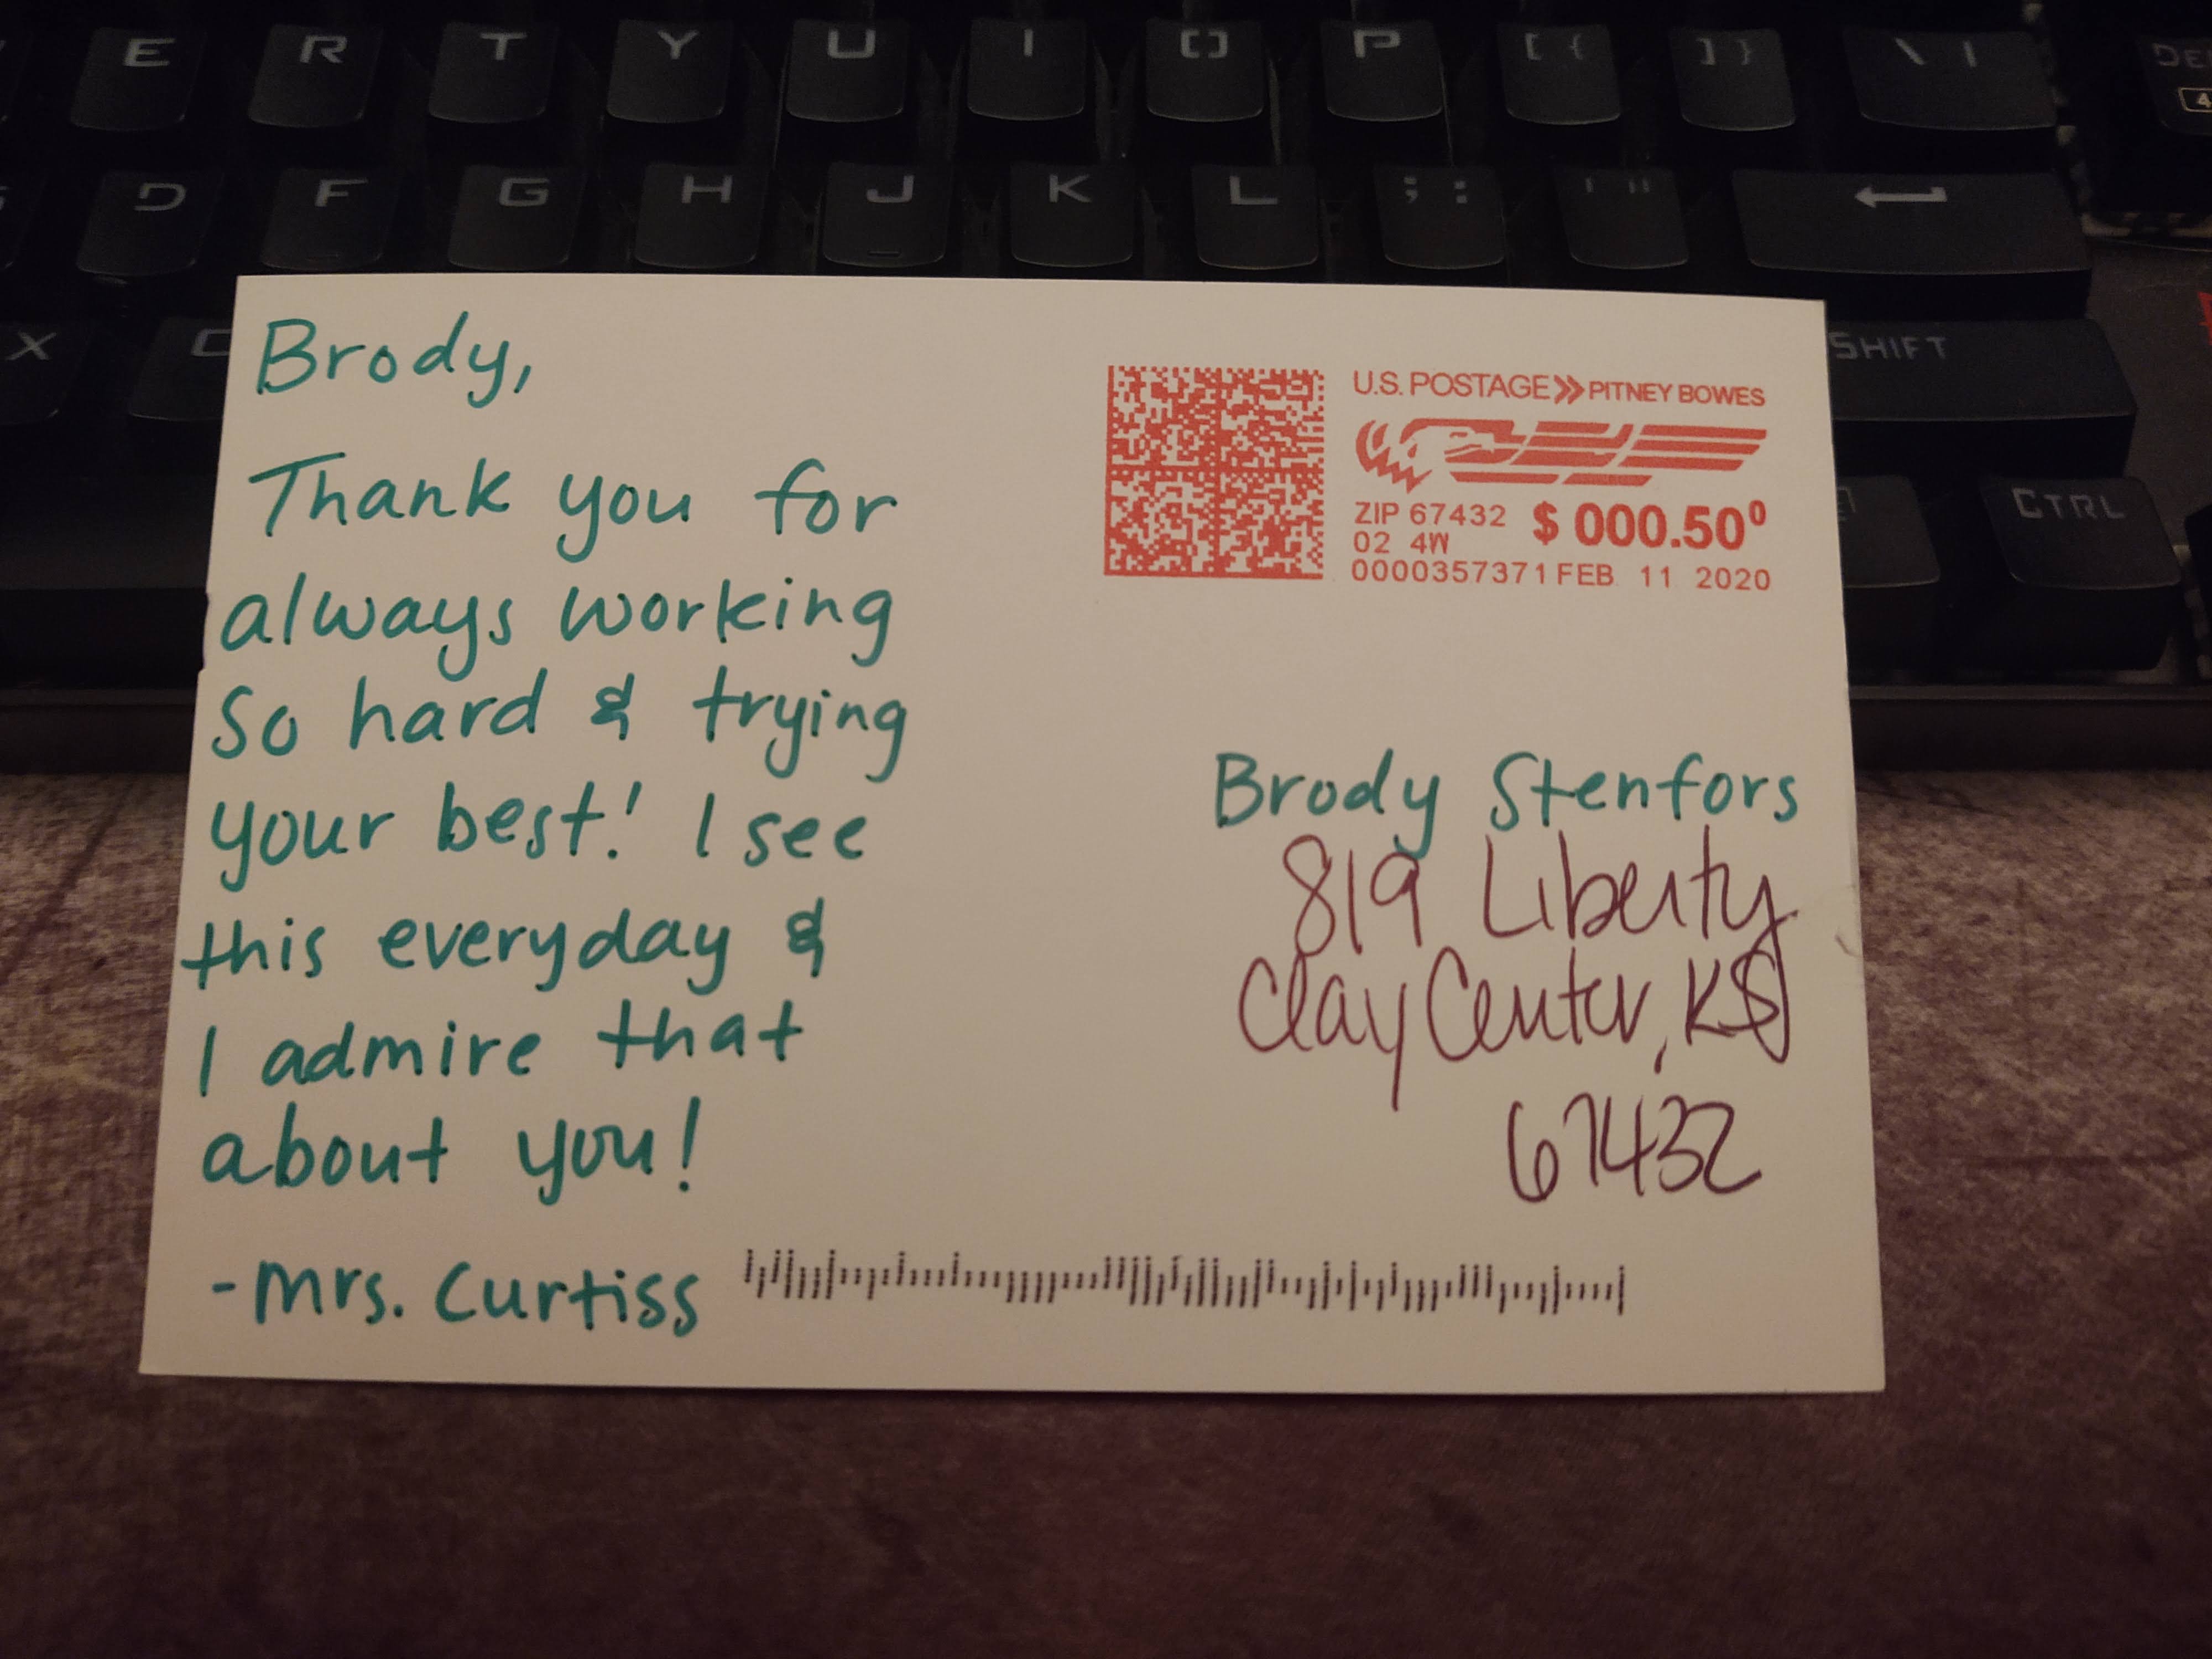 E R T Y U I O P [ { ] } \ | DEL
4
D F G H J K L ; : ' " ←
X C SHIFT
CTRL
Brody,
Thank you for
always working
so hard & trying
your best! I see
this everyday &
I admire that
about you!
- Mrs. Curtiss
U.S. POSTAGE >> PITNEY BOWES
ZIP 67432 $ 000.50⁰
02 4W
0000357371 FEB 11 2020
Brody Stenfors
819 Liberty
Clay Center, KS
67432